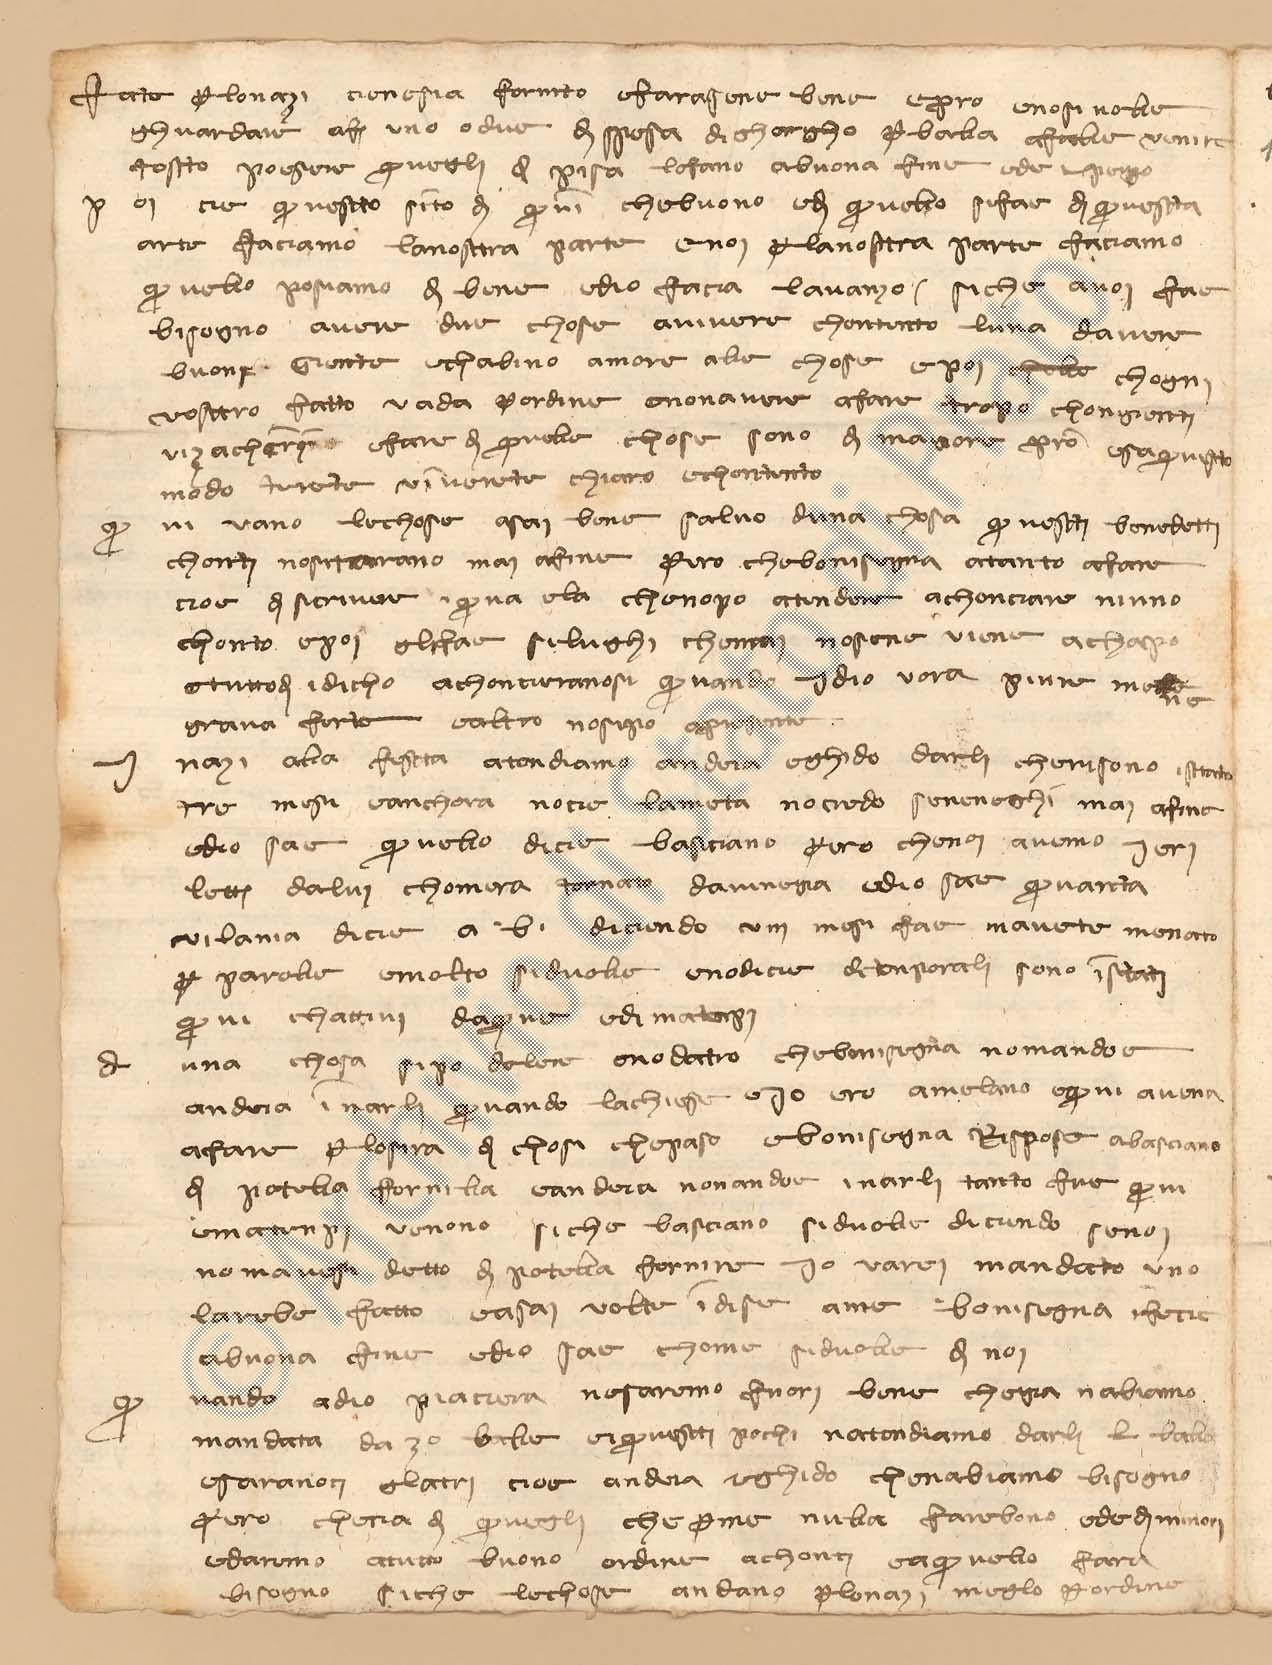 Fate p lonazi cie nesia fornito e faràsene bene e pro e nosi vole
ghuardare a f. uno o due di spesa di ghorgho p balla a farle venire
tosto po essere quegli di Pisa lo fano a buona fine ed è i pegio
Poi cie questo sito di qui ch'è buono ed quello si fae di questa
arte faciamo la nostra parte e noi p la nostra parte faciamo
quello posiamo di bene e Dio facia l'avanzo / siché a voi fae
bisogno avere due chose a vivere chontento l'una d'avere
buona giente e ch'abino amore ale chose e poi ch'ogni
vostro fatto vada p ordine e non avere a fare tropo chon gienti
e fare di quelle chose sono di magiore pro e a questo
modo verete vi verete chiaro e chontento
Qui vano le chose asai bene salvo d'una chosa questi benedetti
chonti no si trarano mai a fine pero che Bonisegna a tanto a fare
cioe di scrivere i qua e la che no po atendere a chonciare niuno
chonto e poi gli fae sì lughi che mai no se ne viene a chapo
e tutto dì i dicho achoncieransi quando Idio vora pure me ne
grava forte e altro no si può
Inazi ala festa atendiamo Andrea e Ghido d'Arli che vi sono istato
tre mesi e anchora no cie la meta no credo se ne neghi mai a fine
e Dio sae quello dicie Basciano pero che noi avemo ieri
lett. da lui chom'era tornato da Vinegia e Dio sae quanta
vilania dicie a lui diciendo VIII mesi fae m'avete menato
p parolle e molto si duolle e no dicie de tenporali sono istati
qui chattivi d'aque e di ma tenpi
D'una chosa si po dolere e no d'atro che Bonisegna no mandoe
Andrea in Arli quando la chiese e io ero a Melano e qui avea
a fare p lo sira di chosi ch'e paso e Bonisegna rispose a Basciano
di potella fornilla e Andrea non andoe in Arli tanto fue qui
e ma tenpi venono siche Basciano si duolle diciendo se noi
no m'avesi detto di potella fornire io v'arei mandato uno
l'arebe fatto e asai volte i dise a me Bonisegna i fecie
a buona fine e Dio sae chome si duolle di noi
Quando a Dio piaciera ne saremo fuori bene che gia n'abiamo
mandata da 30 balle e i questi pochi n'atendiamo d'Arli L balle
e saranoci gl'atri cioe Andrea e Ghido che n'abiamo bisogno
pero che cia di quegli che p me nulla farebono ed è di minori
e daremo a tutto buono ordine a chonti e a quello fara
bisogno siche le chose andano p lonazi meglo p ordine